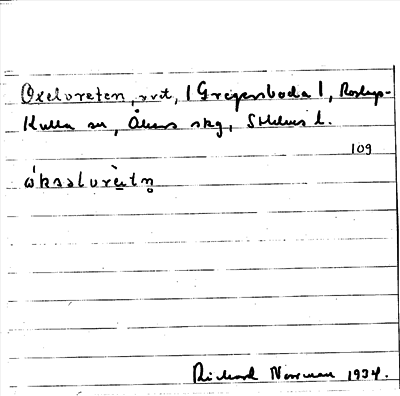 Oxelvreten, vret, (Gregersboda), Roslags-
Kulla sn, Åkers skg, Sthlms l.
109
ὼksəlvrètn̥
Richard Norrman 1934.